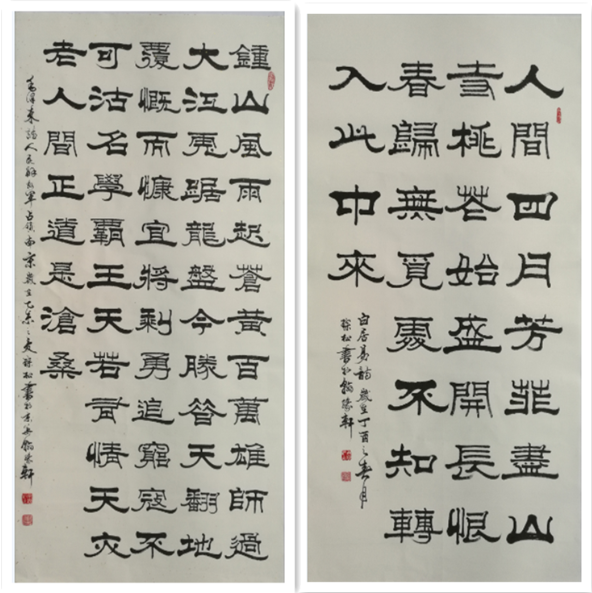 鍾山風雨起蒼黃百萬雄師過
大江虎踞龍盤今勝昔天翻地
覆慨而慷宜將剩勇追窮寇不
可沽名學霸王天若有情天亦
老人間正道是滄桑
毛澤東詩人民解放軍占領南京歲在乙未之夏松書於京軒
人間四月芳菲盡山
寺桃花始盛開長恨
春歸無覓處不知轉
入此中來
白居易歲在丁酉之春月
松書於軒